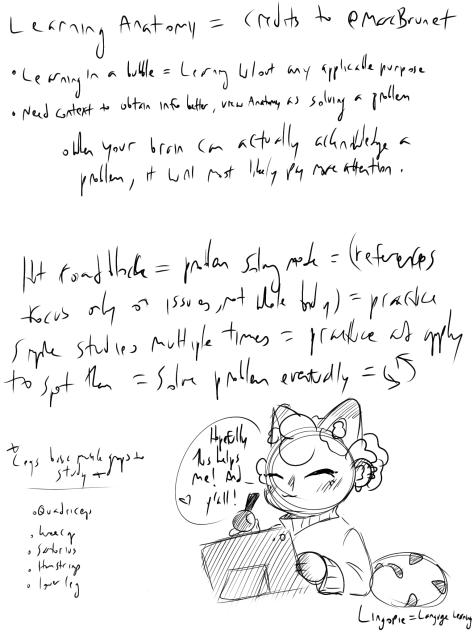 Learning Anatomy = credits to @MarcBrunet
• Learning in a bubble = Learning w/out any applicable purpose
• Need context to obtain info better, view Anatomy as solving a problem
• When your brain can actually acknowledge a
problem, it will most likely pay more attention.
Hit roadblock = problem solving mode = (references
focus only on issues, not whole body) = practice
simple studies multiple times = practice and apply
to spot then = solve problem eventually =
Hopefully
this helps
me! And
y'all!
* Legs basic muscle groups to
study *
• Quadriceps
• kneecap
• Sartorius
• Hamstrings
• lower leg
Lingopie = Language Learning